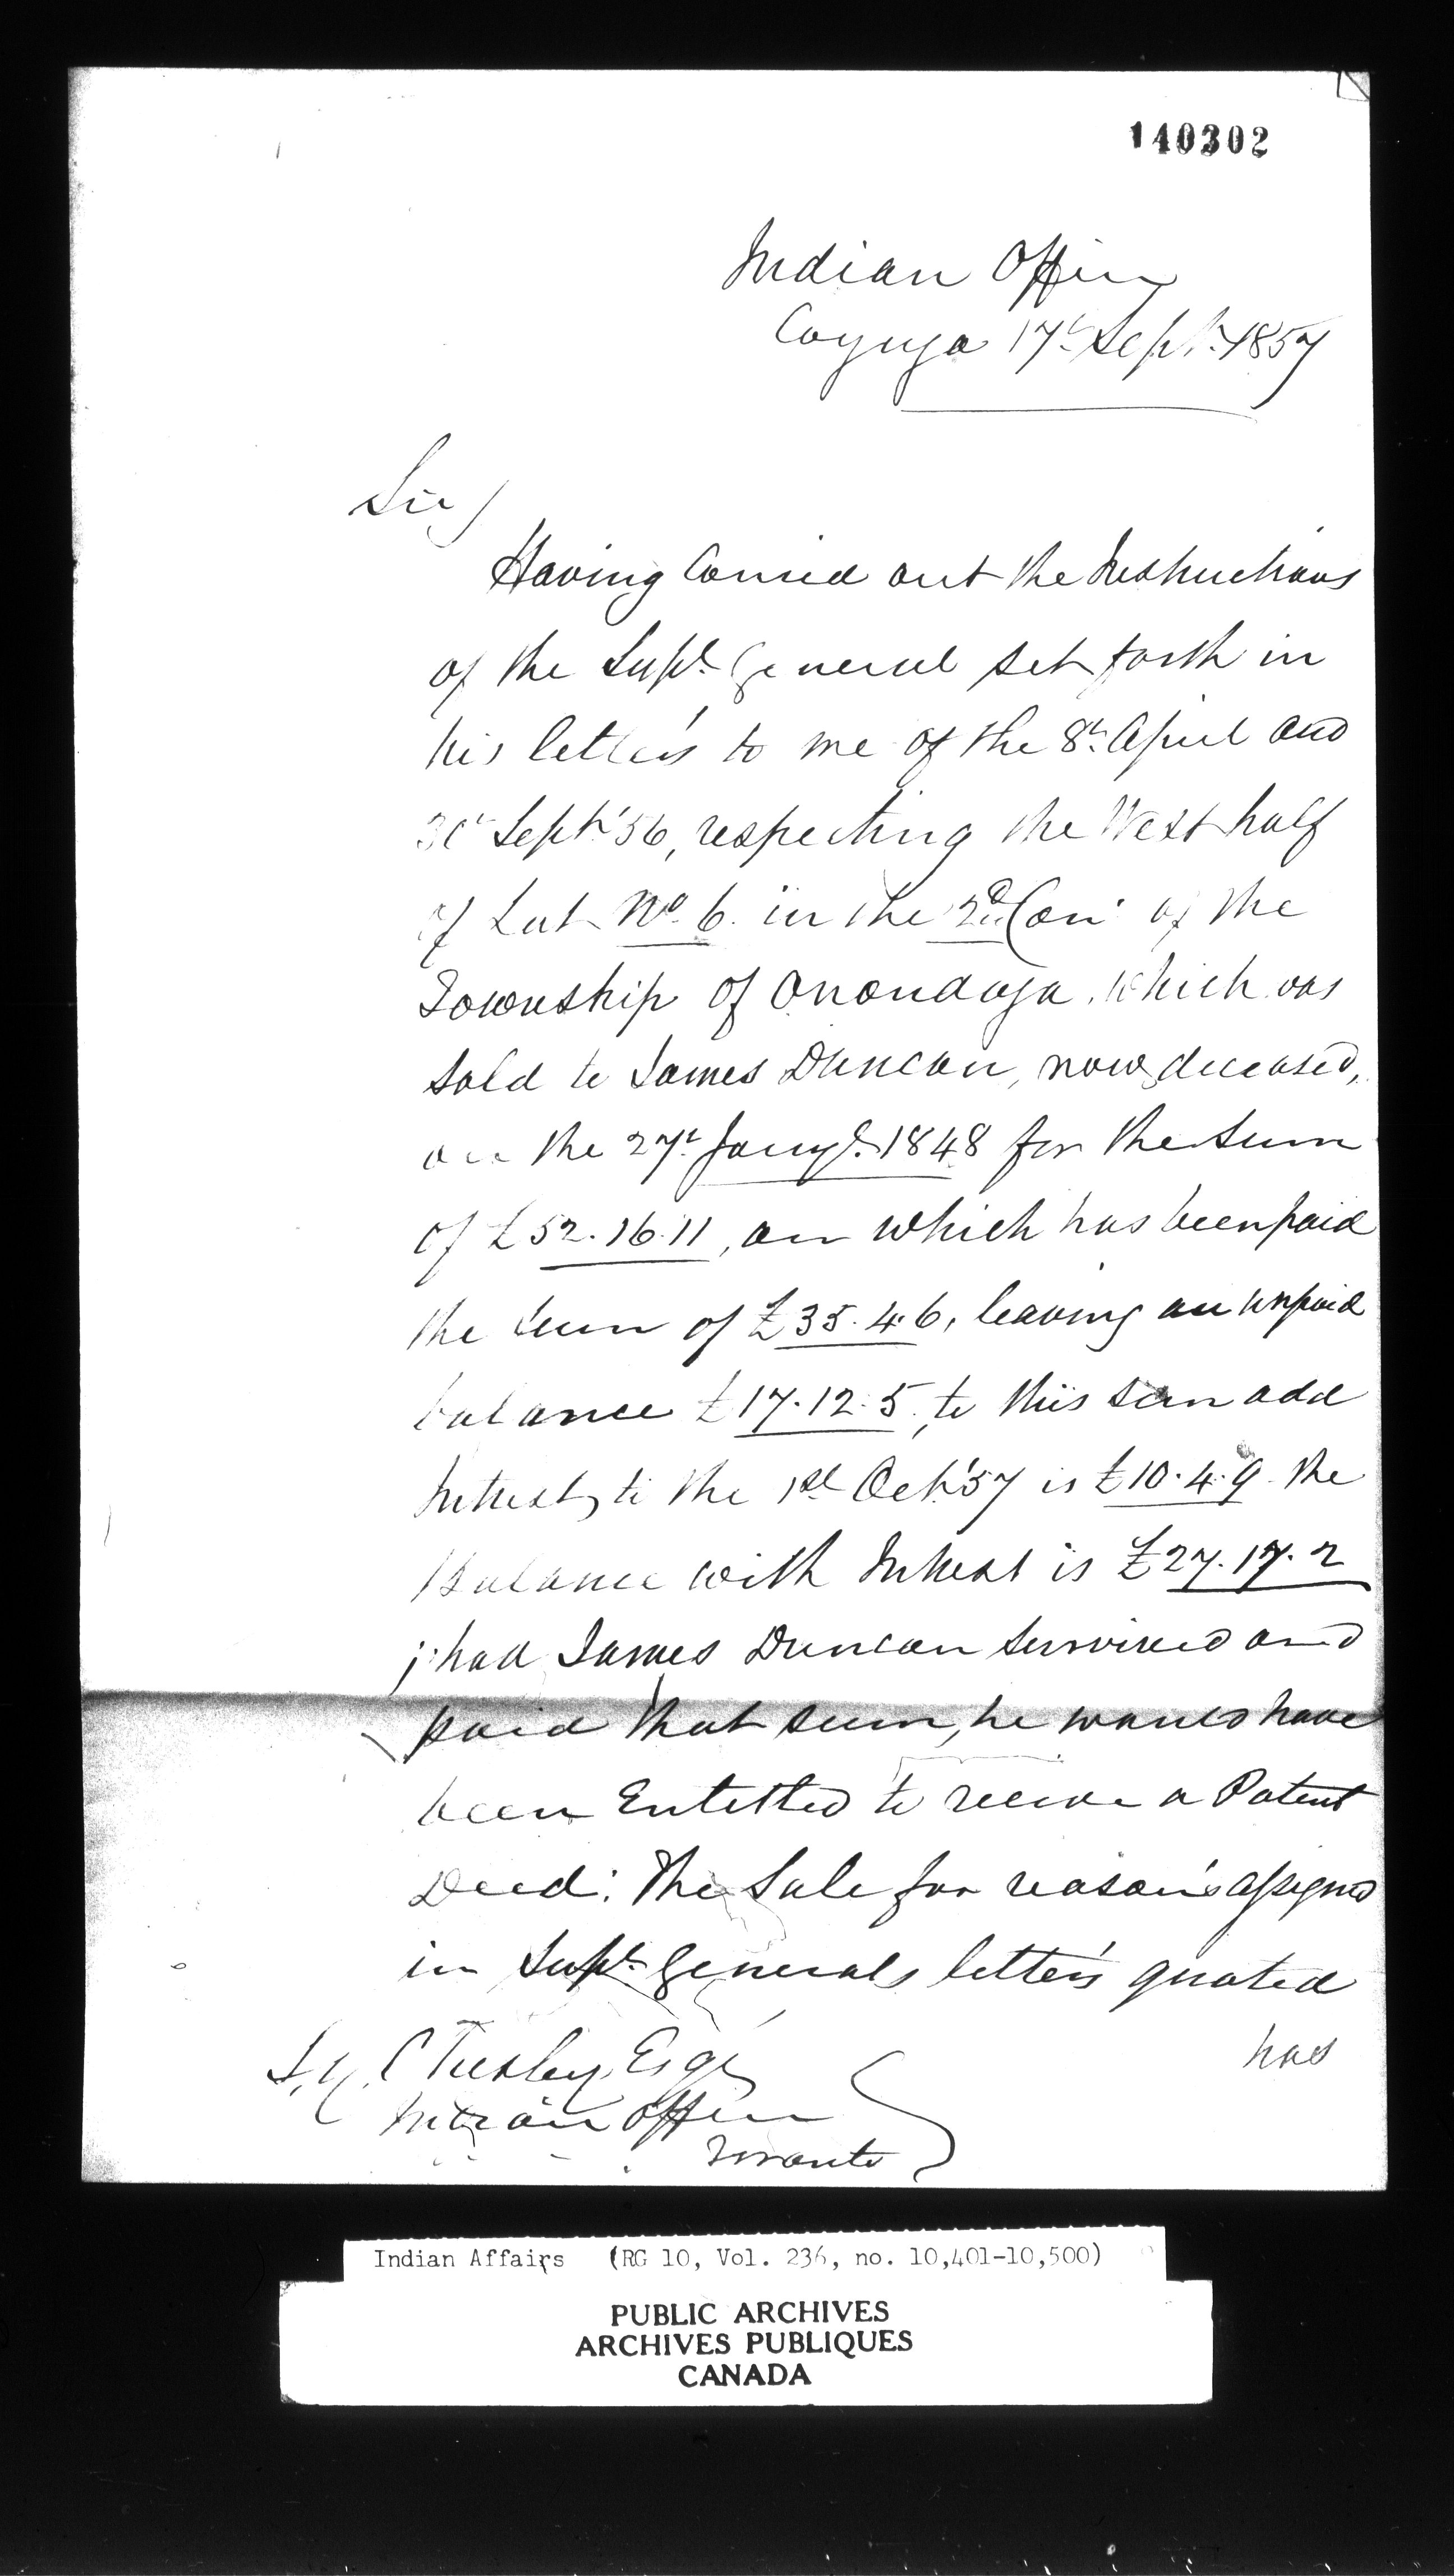 140302
Indian Office
Cayuga 17t Sept. 1857
Sir/
Having Carried out the Instructions
of the Supt. General set forth in
his letter's to me of the 8t. April and
30t Sept. '56, respecting the West half
of Lot No. 6. in the 2d. Con. of the
Township of Onondaga, which was
sold to James Duncan, now deceased,
on the 27t. Jany. 1848 for the Sum
of £52.16.11, on which has been paid
the Sum of £35.4.6, leaving an unpaid
balance £17.12.5, to this sum add
Interest, to the 1st Oct. '57 is £10.4.9 the
Balance with Interest is £27.17.2
; had James Duncan survived and
paid that sum, he would have
been Entitled to receive a Patent
Deed: The Sale for reason's assigned
in Supt. Generals letter's quoted
has
C Turley Esqr
Indian Office
Toronto
Indian Affairs (RG 10, Vol. 236, no. 10,401-10,500)
PUBLIC ARCHIVES
ARCHIVES PUBLIQUES
CANADA